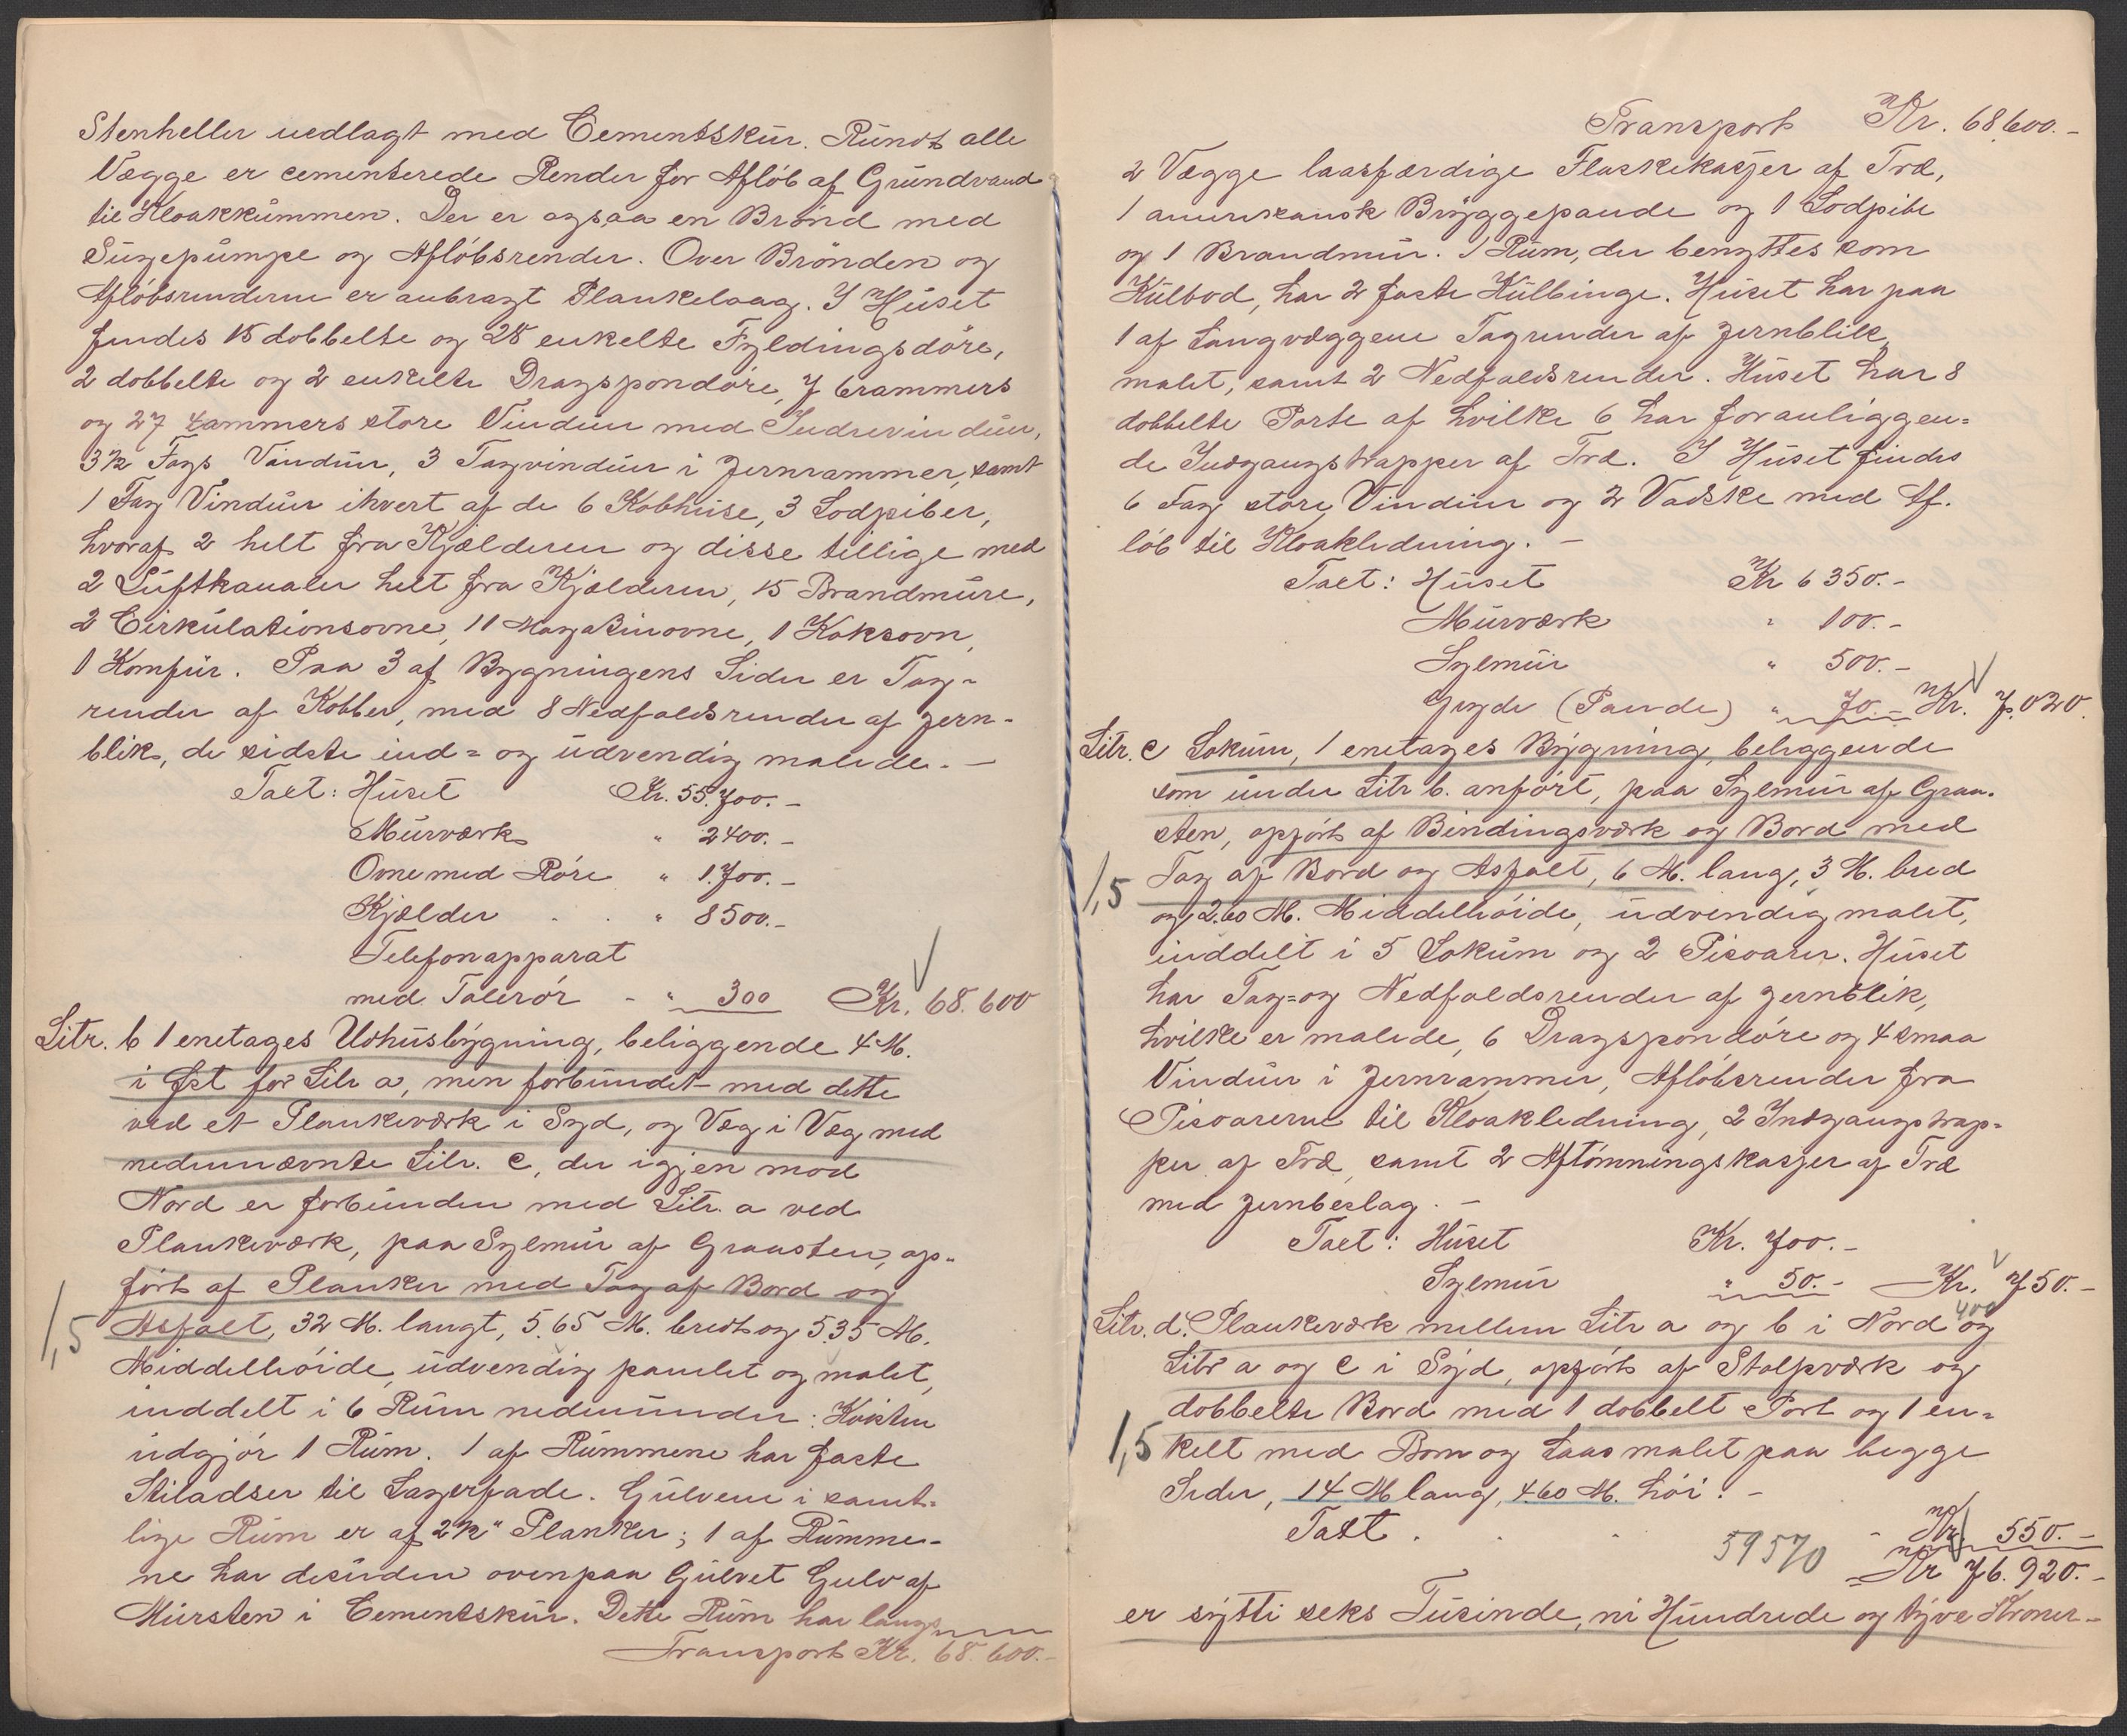 Stenheller nedlagt med Cementskur. Rundt alle
Vægge er cementerede Render for Afløb af Grundvand
til Kloakkummen. Der er ogsaa en Brønd med
Sugepumpe og Afløbsrender. Over Brønden og
Afløbsrenderne er anbragt Plankelaag. I Huset
findes 15 dobbelte og 28 enkelte Fyldingsdøre,
2 dobbelte og 2 enkelte Dragspondøre, 7 6rammers
og 27 4rammers store Vinduer med Indrevinduer,
3½ Fags Vinduer, 3 Tagvinduer i Jernrammer, samt
1 Fag Vinduer i hvert af de 6 Kobhuse, 3 Lodpiber,
hvoraf 2 helt fra Kjælderen og disse tillige med
2 Luftkanaler helt fra Kjælderen, 15 Brandmure,
2 Cirkulationsovne, 11 Magasinovne, 1 Koksovn,
1 Komfur. Paa 3 af Bygningens Sider er Tag-
render af Kobber, med 8 Nedfaldsrender af Jern-
blik, de sidste ind= og udvendig malede. —
Taxt: Huset Kr. 55.700.-
Murværk " 2400.-
Ovne med Røre " 1.700.-
Kjælder " 8500.-
Telefonapparat
med Talerør - " 300 Kr. 68.600
Litr. b 1 enetages Udhusbygning, beliggende 4 M.
i Øst for Litr a, men forbundet med dette
ved et Plankeværk i Syd, og Væg i Væg med
nedennævnte Litr. c, der igjen mod
Nord er forbunden med Litr. a ved
Plankeværk, paa Sylmur af Graasten, op-
ført af Planker med Tag af Bord og
1,5 Asfalt, 32 M. langt, 5.65 M. bredt og 5.35 M.
Middelhøide, udvendig panelet og malet,
inddelt i 6 Rum nedenunder: Kvisten
udgjør 1 Rum. 1 af Rummene har faste
Stiladser til Lagerfade. Gulvene i samt-
lige Rum er af 2½" Planker; 1 af Rumme-
ne har desuden ovenpaa Gulvet Gulv af
Mursten i Cementskur. Dette Rum har langs
Transport Kr. 68.600.-
Transport Kr. 68.600.-
2 Vægge laasfærdige Flaskekasjer af Træ,
1 amerikansk Bryggepande og 1 Lodpibe
og 1 Brandmur. 1 Rum, der benyttes som
Kulbod, har 2 faste Kulbinge. Huset har paa
1 af Langvæggene Tagrender af Jernblik,
malet, samt 2 Nedfaldsrender. Huset har 8
dobbelte Porte af hvilke 6 har foranliggen=
de Indgangstrapper af Træ. I Huset findes
6 Fag store Vinduer og 2 Vadske med Af-
løb til Kloakledning. —
Taxt: Huset Kr 6350.-
Murværk " 100.-
Sylmur " 500.-
Gryde (Pande) " 70.- Kr. 7.020.
Litr. c Lokum, 1 enetages Bygning, beliggende
som under Litr b. anført, paa Sylmur af Graa-
sten, opført af Bindingsværk og Bord med
1,5 Tag af Bord og Asfalt, 6 M. lang, 3 M. bred
og 2.60 M. Middelhøide, udvendig malet,
inddelt i 5 Lokum og 2 Pisoarer. Huset
har Tag= og Nedfaldsrender af Jernblik,
hvilke er malede, 6 Dragspondøre og 4 smaa
Vinduer i Jernrammer, Afløbsrender fra
Pisoarerne til Kloakledning, 2 Indgangstrap=
per af Træ, samt 2 Aftømningskasjer af Træ
med Jernbeslag. —
Taxt: Huset Kr. 700.-
Sylmur " 50.- Kr. 750.-
400
Litr. d. Plankeværk mellem Litr a og b i Nord og
Litr a og c i Syd, opført af Stolpværk og
dobbelte Bord med 1 dobbelt Port og 1 en=
1,5 kelt med Bom og Laas malet paa begge
Sider, 14 M lang, 4.60 M. høi. -
Taxt . . . - Kr. 550.-
59570 Kr 76.920.-
er sytti seks Tusinde, ni Hundrede og tyve Kroner -